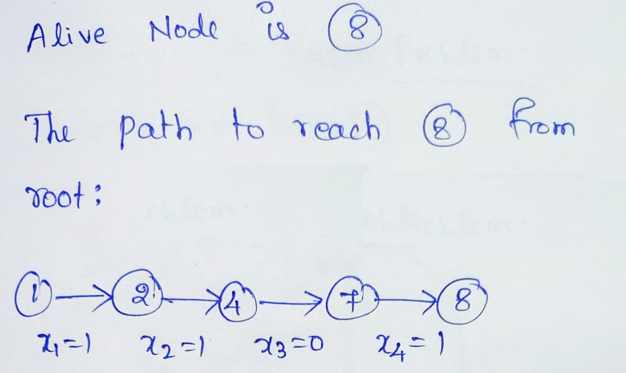 Alive Node is 8
The path to reach 8 from
root:
1 → 2 → 4 → 7 → 8
x₁=1 x₂=1 x₃=0 x₄=1